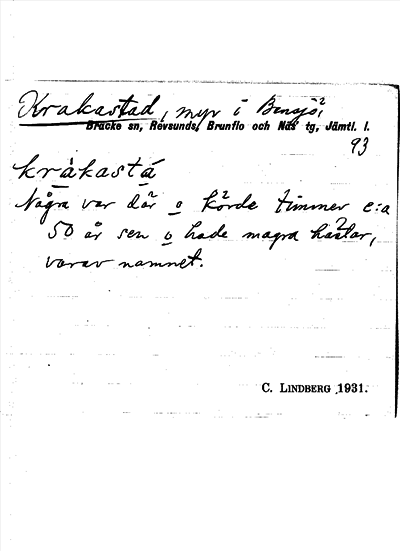 Krakastad, myr i Bensjö,
Bräcke sn, Revsunds, Brunflo och Näs tg, Jämtl. l.
93
kràkastá
Några var där o körde timmer c:a
50 år sen o hade magra hästar,
varav namnet.
C. LINDBERG 1931.